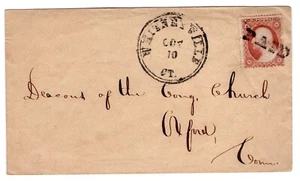 WHITNEYVILLE
OCT
10
CT.
PAID
Deacons of the Cong. Church
Oxford,
Conn.